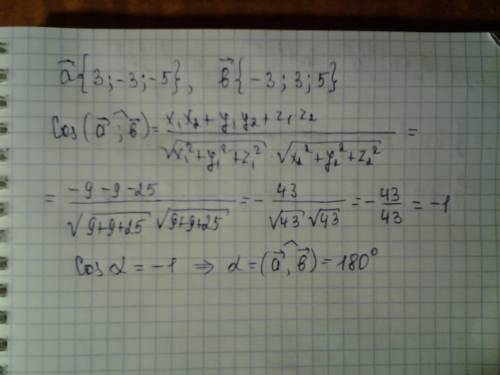 a⃗{3;-3;-5}, b⃗{-3;3;5}
Cos(a⃗;b⃗) = (x₁x₂+y₁y₂+z₁z₂)/(√(x₁²+y₁²+z₁²) · √(x₂²+y₂²+z₂²)) =
= (-9-9-25)/(√(9+9+25) √(9+9+25)) = -43/(√43 √43) = -43/43 = -1
Cos α = -1 ⇒ α = (a⃗,b⃗) = 180°